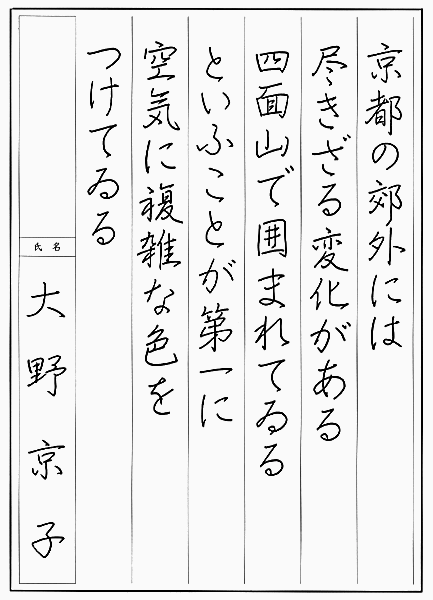 京都の郊外には
尽きざる変化がある
四面山で囲まれてゐる
といふことが第一に
空気に複雑な色を
つけてゐる
氏名
大野京子